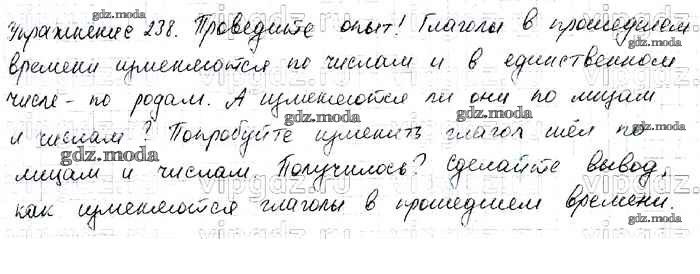 Упражнение 238. Проведите опыт! Глаголы в прошедшем
времени изменяются по числам и в единственном
числе - по родам. А изменяются ли они по лицам
и числам? Попробуйте изменить глагол шёл по
лицам и числам. Получилось? Сделайте вывод,
как изменяются глаголы в прошедшем времени.